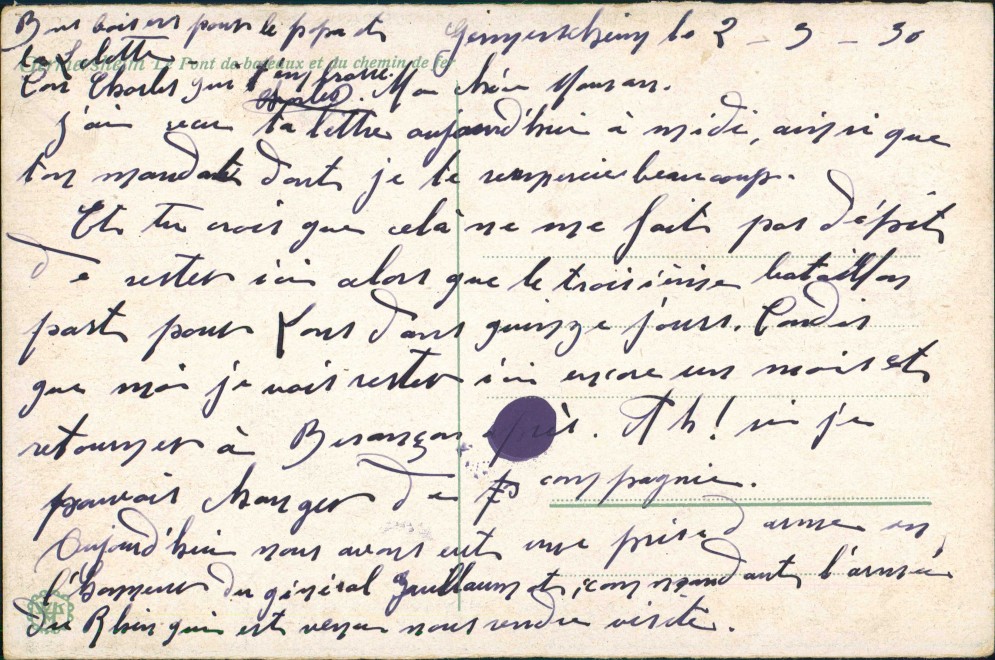 Bons baisers pour le papa et
la Lolotte
Ton Charles qui t'embrasse.
Charles
Germersheim le 2 – 3 – 30
Germersheim Le Pont de bateaux et du chemin de fer
Ma chère Maman.
J'ai reçu ta lettre aujourd'hui à midi, ainsi que
ton mandat dont je te remercie beaucoup.
Et tu crois que celà ne me fait pas dépit
de rester ici alors que le troisième bataillon
part pour dans quinze jours. Tandis
que moi je vais rester ici encore un mois et
retourner à Besançon après. Ah! si je
pouvais changer de compagnie.
Aujourd'hui nous avons eut une prise d'arme en
l'honneur du général Guillaumat, commandant l'armée
du Rhin qui est venu nous rendre visite.